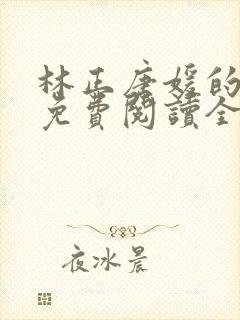 林正唐媛的
免費閱讀全
夜冰晨